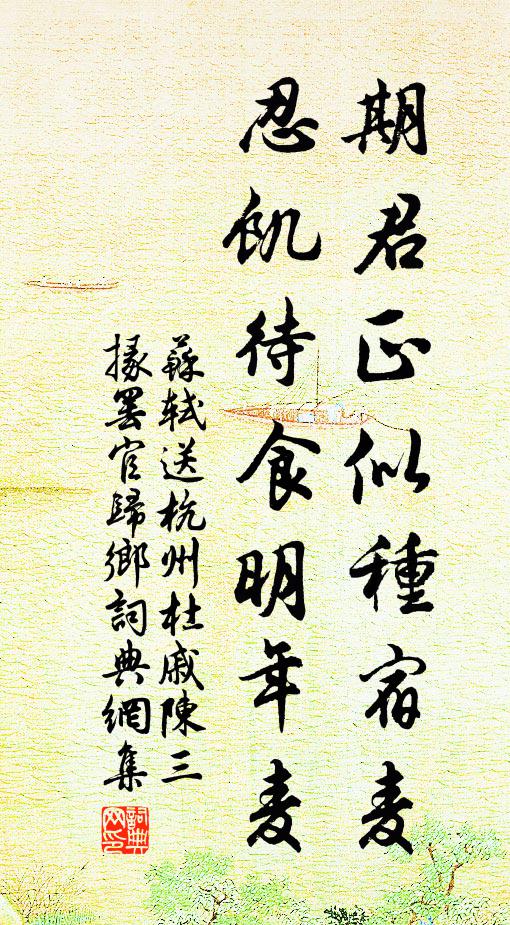 期君正似種宿麦
忍飢待食明年麦
蘇軾送杭州杜戚陳三
掾罢官歸鄉詞典網集
詞典
网印